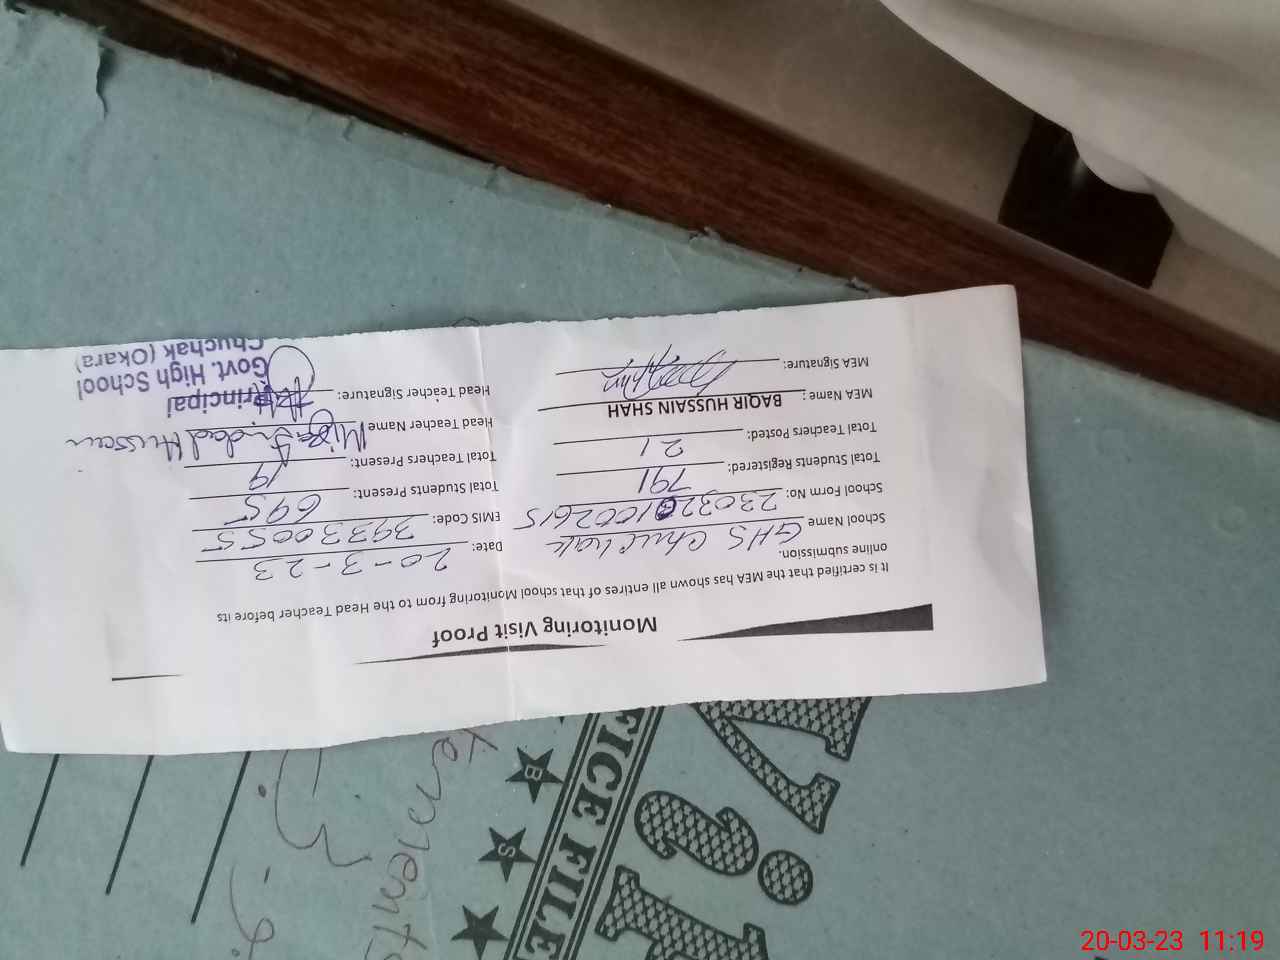 Monitoring Visit Proof
It is certified that the MEA has shown all entires of that school Monitoring from to the Head Teacher before its
online submission.
School Name GHS Chuchak
Date: 20-3-23
School Form No: 2303201002615
EMIS Code: 39330055
Total Students Registered: 791
Total Students Present: 695
Total Teachers Posted: 21
Total Teachers Present: 19
MEA Name: BAQIR HUSSAIN SHAH
Head Teacher Name Mirza Imdad Hussain
MEA Signature:
Head Teacher Signature:
Principal
Govt. High School
Chuchak (Okara)
FICE FILE
B S
20-03-23 11:19